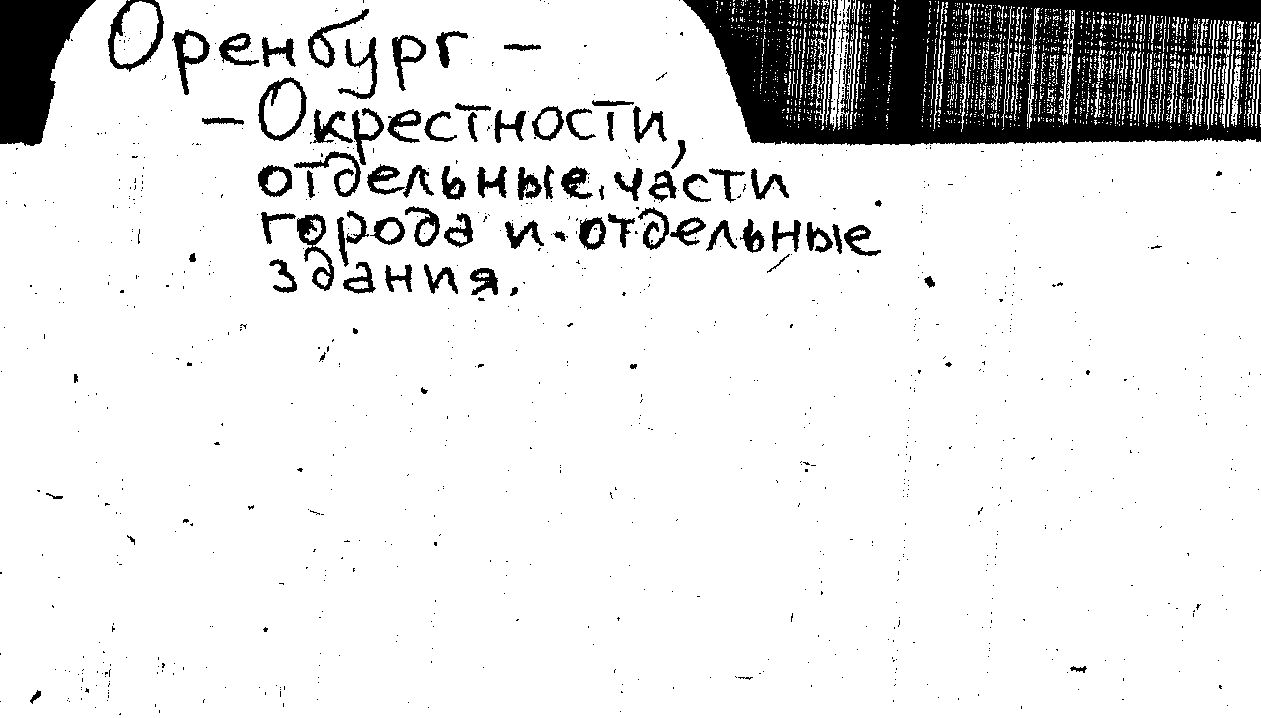 Оренбург –
– Окрестности,
отдельные части
города и отдельные
здания.